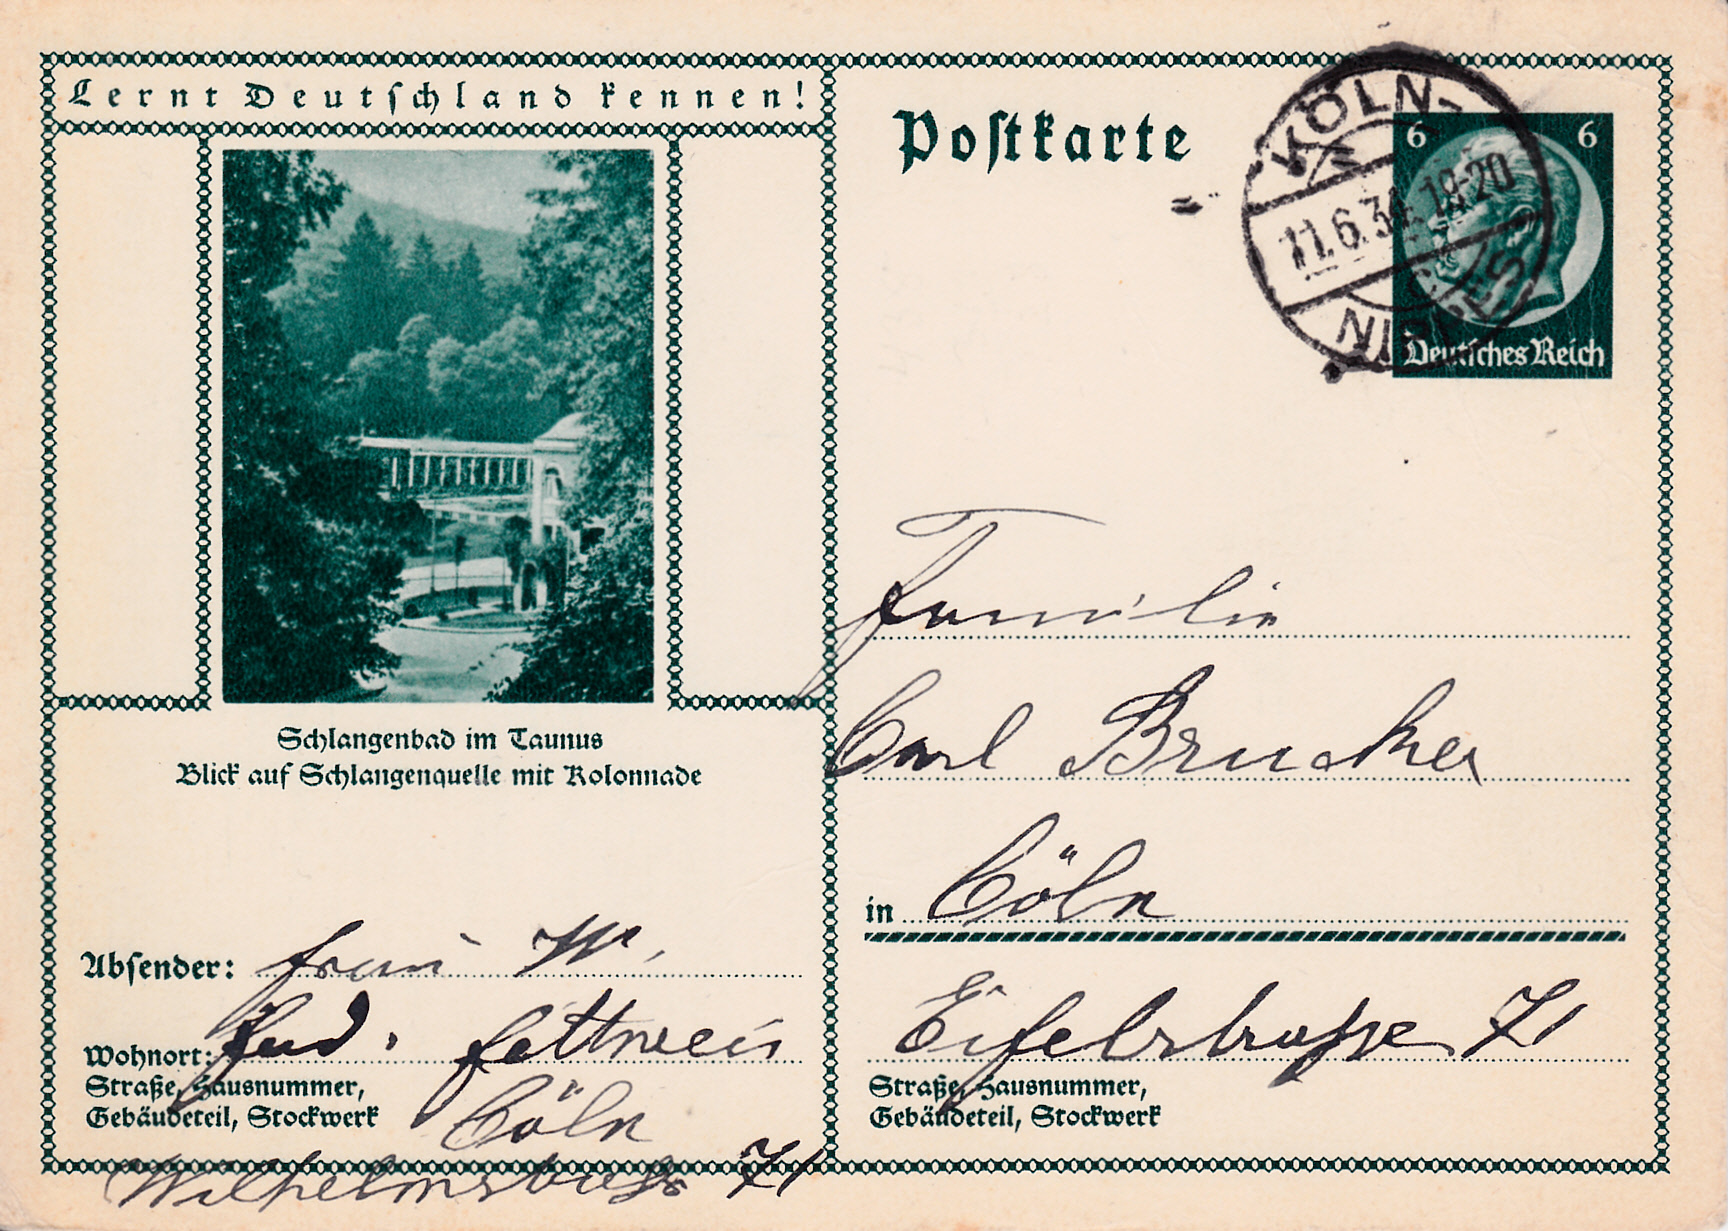 Lernt Deutschland kennen!
Schlangenbad im Taunus
Blick auf Schlangenquelle mit Kolonnade
Absender: Frau W.
Wohnort: Ferd. Fettweis
Straße, Hausnummer,
Gebäudeteil, Stockwerk
Cöln
Wilhelmstrasse 71
Postkarte
KÖLN-
11.6.34. 19-20
NIPPES
6 6
Deutsches Reich
Familie
Carl Brucker
in Cöln
Eifelstrasse 71
Straße, Hausnummer,
Gebäudeteil, Stockwerk